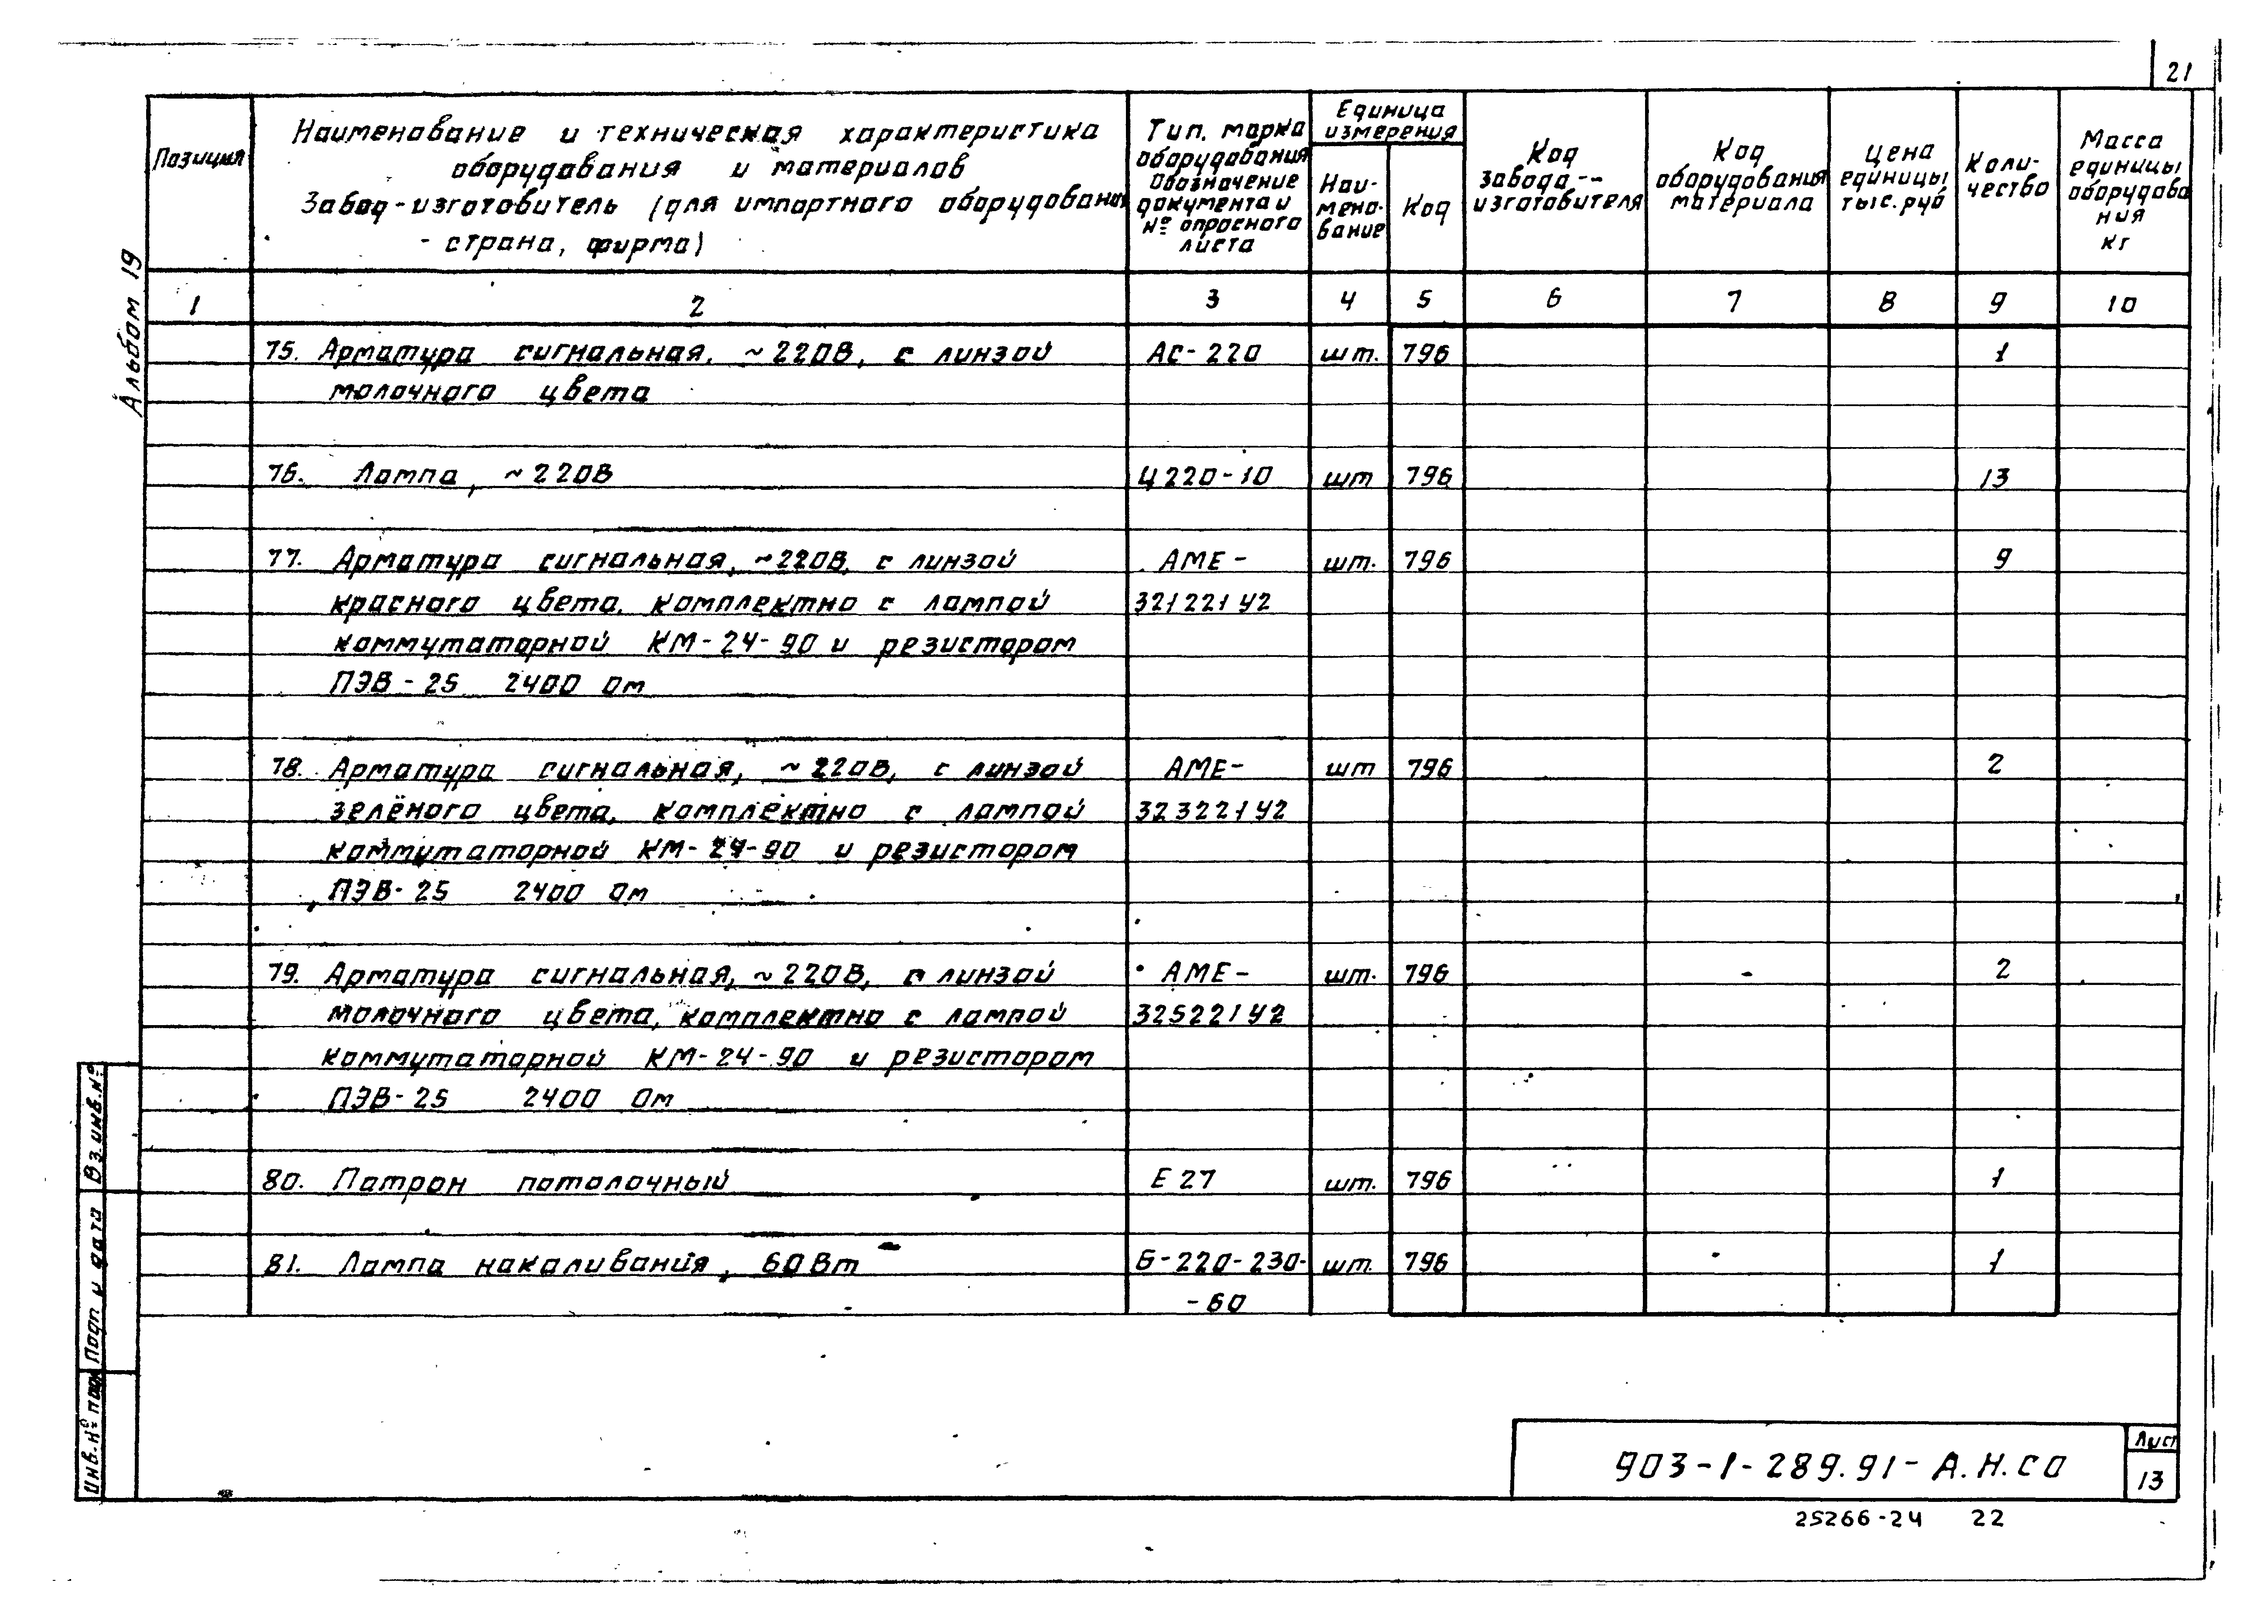 21
Позиция
Наименование и техническая характеристика
оборудования и материалов
Завод-изготовитель (для импортного оборудовани
- страна, фирма)
Тип, марка
оборудования
Обозначение
документа и
№ опросного
листа
Единица
измерения
Наи-
мено-
вание
Код
Код
завода--
изготовителя
Код
оборудования
материала
Цена
единицы
тыс.руб
Коли-
чество
Масса
единицы
оборудова
ния
кг
1 2 3 4 5 6 7 8 9 10
75. Арматура сигнальная, ~220В, с линзой АС-220 шт. 796 1
молочного цвета
76. Лампа, ~220В Ц220-10 шт 796 13
77. Арматура сигнальная, ~220В, с линзой АМЕ- шт. 796 9
красного цвета, комплектно с лампой 321221У2
коммутаторной КМ-24-90 и резистором
ПЭВ-25 2400 Ом
78. Арматура сигнальная, ~220В, с линзой АМЕ- шт 796 2
зелёного цвета, комплектно с лампой 323221У2
коммутаторной КМ-24-90 и резистором
ПЭВ-25 2400 Ом
79. Арматура сигнальная, ~220В, с линзой АМЕ- шт. 796 2
молочного цвета, комплектно с лампой 325221У2
коммутаторной КМ-24-90 и резистором
ПЭВ-25 2400 Ом
80. Патрон потолочный Е27 шт. 796 1
81. Лампа накаливания, 60Вт Б-220-230- шт. 796 1
-60
Альбом 19
Вз.инв.№
Подп. и дата
Инв.№ подл
903-1-289.91-А.Н.СО
Лист
13
25266-24 22